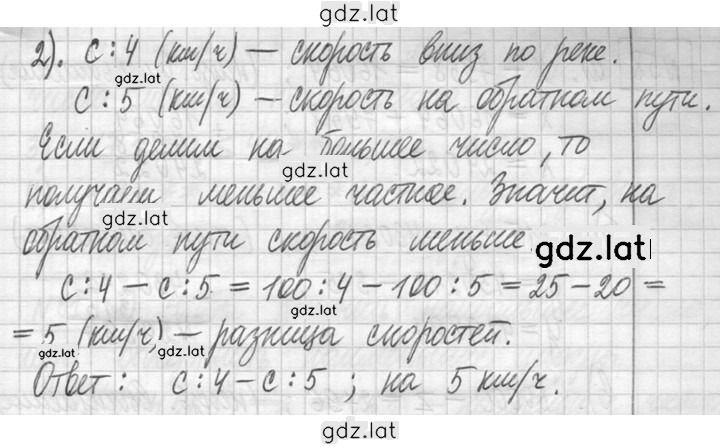 gdz.lat
2). с : 4 (км/ч) — скорость вниз по реке.
gdz.lat
с : 5 (км/ч) — скорость на обратном пути.
gdz.lat
Если делим на большее число, то
получаем меньшее частное. Значит, на
gdz.lat
обратном пути скорость меньше
gdz.lat
с : 4 − с : 5 = 100 : 4 − 100 : 5 = 25 − 20 =
gdz.lat
= 5 (км/ч) — разница скоростей.
gdz.lat
gdz.lat
Ответ : с : 4 − с : 5 ; на 5 км/ч.
gdz.lat
gdz.lat